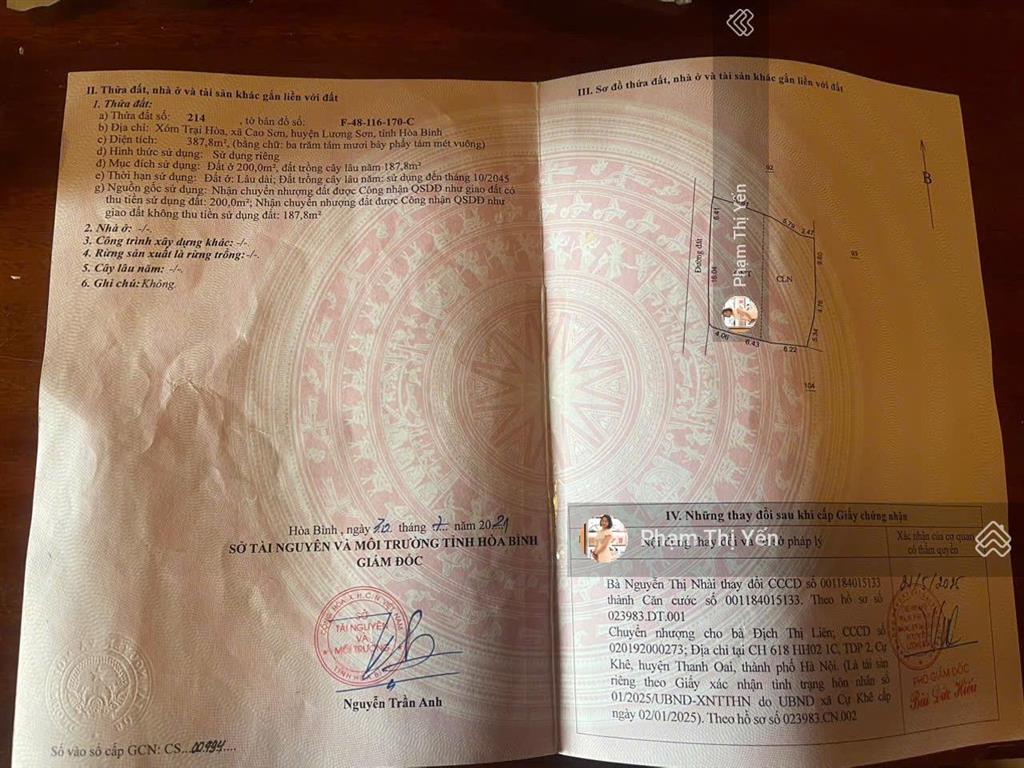 II. Thửa đất, nhà ở và tài sản khác gắn liền với đất
1. Thửa đất:
a) Thửa đất số: 214 , tờ bản đồ số: F-48-116-170-C
b) Địa chỉ: Xóm Trại Hòa, xã Cao Sơn, huyện Lương Sơn, tỉnh Hòa Bình
c) Diện tích: 387,8m², (bằng chữ: ba trăm tám mươi bảy phẩy tám mét vuông)
d) Hình thức sử dụng: Sử dụng riêng
đ) Mục đích sử dụng: Đất ở 200,0m², đất trồng cây lâu năm 187,8m²
e) Thời hạn sử dụng: Đất ở: Lâu dài; Đất trồng cây lâu năm: sử dụng đến tháng 10/2045
g) Nguồn gốc sử dụng: Nhận chuyển nhượng đất được Công nhận QSDĐ như giao đất có
thu tiền sử dụng đất: 200,0m²; Nhận chuyển nhượng đất được Công nhận QSDĐ như
giao đất không thu tiền sử dụng đất: 187,8m²
2. Nhà ở: -/-.
3. Công trình xây dựng khác: -/-.
4. Rừng sản xuất là rừng trồng: -/-.
5. Cây lâu năm: -/-.
6. Ghi chú: Không.
Hòa Bình , ngày 30 tháng 7 năm 2021
SỞ TÀI NGUYÊN VÀ MÔI TRƯỜNG TỈNH HÒA BÌNH
GIÁM ĐỐC
SỞ
TÀI NGUYÊN
VÀ
MÔI TRƯỜNG
Nguyễn Trần Anh
Số vào sổ cấp GCN: CS...00994....
III. Sơ đồ thửa đất, nhà ở và tài sản khác gắn liền với đất
B
92
6.41
5.79
3.47
Đường đất
16.04
9.60
93
CLN
4.76
5.34
4.06
6.43
6.22
104
Phạm Thị Yến
IV. Những thay đổi sau khi cấp Giấy chứng nhận
Phạm Thị Yến
Nội dung thay đổi và pháp lý
Xác nhận của cơ quan
có thẩm quyền
Bà Nguyễn Thị Nhài thay đổi CCCD số 001184015133
thành Căn cước số 001184015133. Theo hồ sơ số
023983.DT.001
Chuyển nhượng cho bà Địch Thị Liên; CCCD số
020192000273; Địa chỉ tại CH 618 HH02 1C, TDP 2, Cự
Khê, huyện Thanh Oai, thành phố Hà Nội. (Là tài sản
riêng theo Giấy xác nhận tình trạng hôn nhân số
01/2025/UBND-XNTTHN do UBND xã Cự Khê cấp
ngày 02/01/2025). Theo hồ sơ số 023983.CN.002
PHÓ GIÁM ĐỐC
Bùi Đức Hiếu